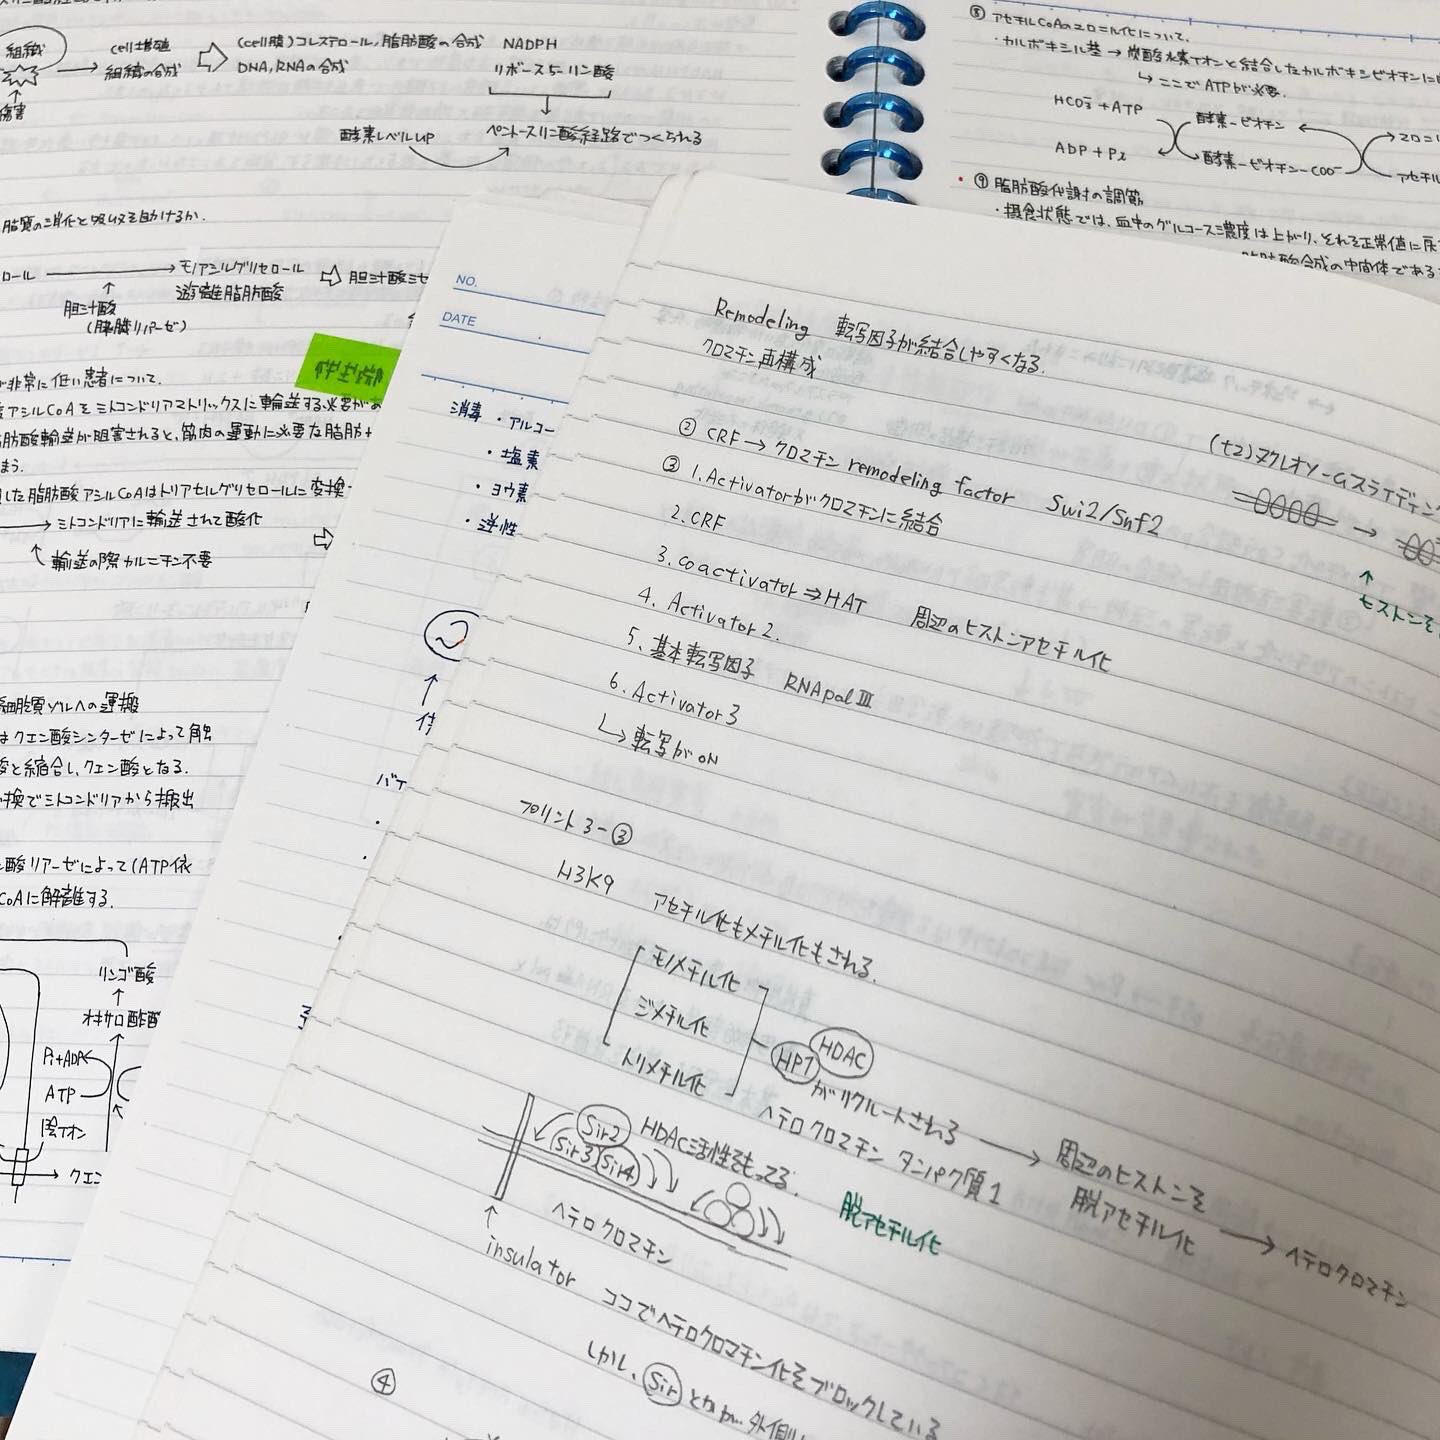 組織
傷害
cell増殖
組織の合成
(cell膜)コレステロール,脂肪酸の合成
DNA,RNAの合成
NADPH
リボース5-リン酸
酵素レベルUP
ペントースリン酸経路でつくられる
脂質の消化と吸収を助けるか.
ロール
モノアシルグリセロール
遊離脂肪酸
胆汁酸
(膵臓リパーゼ)
胆汁酸ミセ
が非常に低い患者について.
アシルCoAをミトコンドリアマトリックスに輸送する必要があ
脂肪酸輸送が阻害されると、筋肉の運動に必要な脂肪
まう.
した脂肪酸アシルCoAはトリアセルグリセロールに変換
→ミトコンドリアに輸送されて酸化
輸送の際カルニチン不要
細胞質ゾルへの運搬
はクエン酸シンターゼによって触
酸と縮合し、クエン酸となる.
換でミトコンドリアから搬出
酸リアーゼによって(ATP依
CoAに解離する.
リンゴ酸
オキサロ酢酸
Pi+ADP
ATP
陰イオン
→クエン
⑧ アセチルCoAのマロニル化について.
・カルボキシル基→炭酸水素イオンと結合したカルボキシビオチンに
↳ここでATPが必要.
HCO₃⁻+ATP
ADP+Pi
酵素-ビオチン
酵素-ビオチン-COO⁻
マロニ
アセチル
⑨ 脂肪酸代謝の調節
・摂食状態では、血中のグルコース濃度は上がり、それを正常値に戻
脂肪酸合成の中間体である
NO.
DATE
消毒 ・アルコー
・塩素
・ヨウ素
・逆性
Remodeling 転写因子が結合しやすくなる.
クロマチン再構成
② CRF→クロマチン remodeling factor Swi2/Snf2
(+2)ヌクレオソームスライディング
③ 1.Activatorがクロマチンに結合
2.CRF
3.coactivator⇒HAT 周辺のヒストンアセチル化
ヒストンを
4.Activator2.
5.基本転写因子 RNApolⅡ
6.Activator3
↳転写がON
プリント3-③
H3K9 アセチル化もメチル化もされる.
モノメチル化
ジメチル化
トリメチル化
HP1 HDAC がリクルートされる → 周辺のヒストンを
脱アセチル化 → ヘテロクロマチン
ヘテロクロマチンタンパク質1
Sir2
Sir3 Sir4
HDAC活性をもってる.
脱アセチル化
ヘテロクロマチン
insulator ココでヘテロクロマチン化をブロックしている
しかし、Sirとかが、外側
④